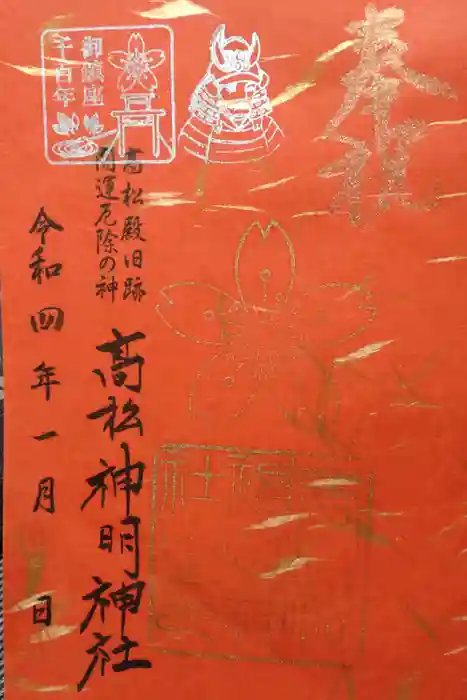 奉拝
御鎮座
千百年
高松殿旧跡
開運厄除の神
高松神明神社
令和四年一月 日